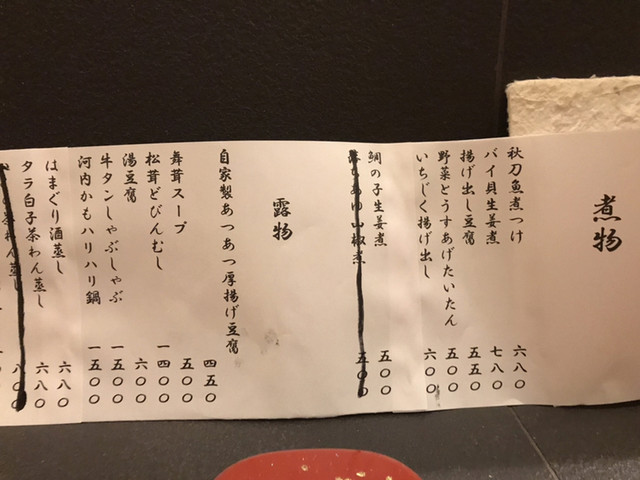 煮物
秋刀魚煮つけ 六八〇
バイ貝生姜煮 七八〇
揚げ出し豆腐 五五〇
野菜とうすあげたいたん 五五〇
いちじく揚げ出し 六〇〇
鯛の子生姜煮 五〇〇
落ちあゆ山椒煮 五〇〇
露物
自家製あつあつ厚揚げ豆腐 四五〇
舞茸スープ 五〇〇
松茸どびんむし 一四〇〇
湯豆腐 六〇〇
牛タンしゃぶしゃぶ 一五〇〇
河内かもハリハリ鍋 一五〇〇
はまぐり酒蒸し 六八〇
タラ白子茶わん蒸し 六八〇
茶わん蒸し 八〇〇